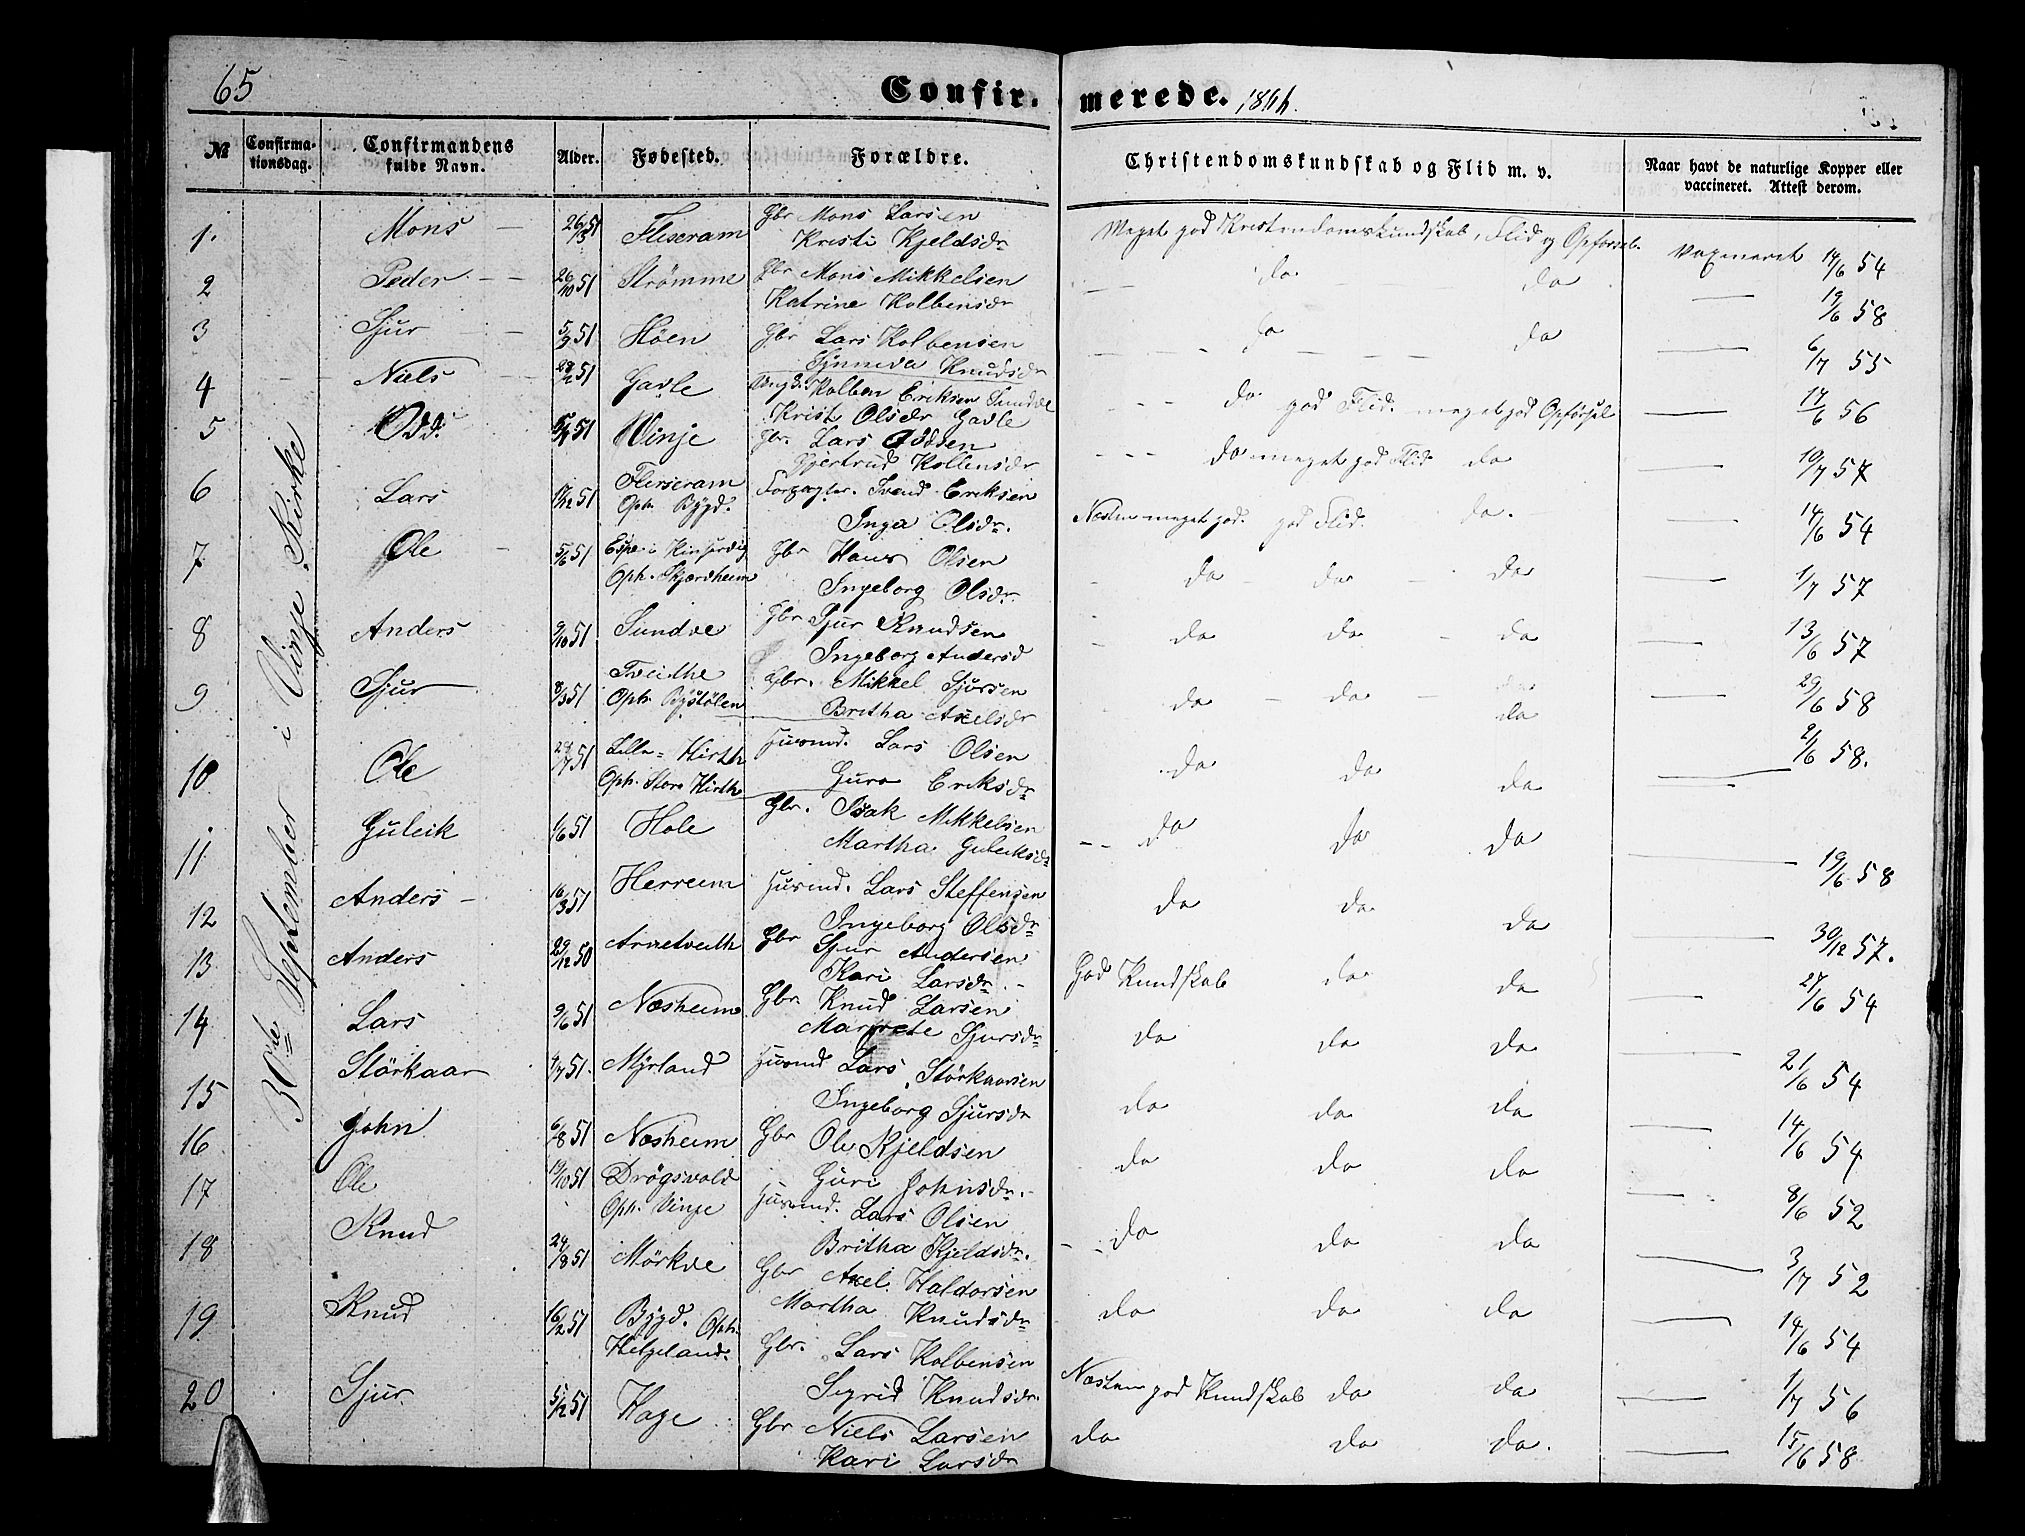 65
Confir.
merede. 1866.
№
Confirma-
tionsdag.
Confirmandens
fulde Navn.
Alder.
Fødested.
Forældre.
Christendomskundskab og Flid m. v.
Naar havt de naturlige Kopper eller
vaccineret. Attest derom.
30te September i Vinje Kirke
1. Mons 51 Fliseram Gbr Mons Larsen Meget god Kristendomskundskab, Flid og Opførsel. 14/6 54
Kristi Kjeldsdr
2 Peder 26/10 51 Strømme Gbr Mons Mikkelsen do do 19/6 58
Katrine Kolbensdr
3 Sjur 51 Høen Gbr Lars Kolbensen do do 6/7 55
Synneva Knudsdr
4 Niels 51 Gavle Kolben Eriksen Sundve do god Flid. meget god Opførsel 17/6 56
Krist. Olsdr Gavle
5 Odd. 51 Vinje Gbr. Lars Oddsen do meget god Flid do 10/7 57
Gjertrud Kolbensdr
6 Lars 17/12 51 Fliseram Forpagter. Svend Eriksen Næsten meget god. god Flid. do. 14/6 54
Oph. Bygd. Inga Olsdr.
7 Ole 5/6 51 Espe i Kinservig Gbr Hans Olsen do do do 1/7 57
Oph. Skjerdheim Ingeborg Olsdr.
8 Anders 9/10 51 Sundve Gbr Sjur Knudsen do do do 13/6 57
Ingeborg Andersd
9 Sjur 8/3 51 Tveithe Gbr. Mikkel Sjursen do do do 29/6 58
Oph. Bystølen Britha Axelsdr do
10 Ole 51 Lille Hirth Husmd. Lars Olsen do do do 2/6 58.
Oph. Store Hirth Guro Eriksdr
11 Guleik 1/6 51 Hole Gbr. Isak Mikkelsen do do do 19/6 58
Martha Guleiksdr
12 Anders 16/3 51 Herreim Husmd. Lars Steffensen do do do 30/12 57.
Ingeborg Olsdr
13 Anders 29/12 50 Arnetveith Gbr Sjur Andersen God Kundskab do do 27/6 54
Kari Larsdr.
14 Lars 9/6 51 Næsheim Gbr. Knud Larsen do do do 21/6 54
Margrete Sjursdr
15 Störkaar 51 Myrland Husmd Lars Störkaarsen do do do 14/6 54
Ingeborg Sjursdr
16 John 6/8 51 Næsheim Gbr Ole Kjeldsen do do do 8/6 52
Guri Johnsdr.
17 Ole 19/10 51 Drøgsvold Husmd. Lars Olsen do do do 3/7 52
Oph. Vinje Britha Kjeldsdr.
18 Knud 24/8 51 Mörkve Gbr Axel Haldorsen do do do 14/6 54
Martha Knudsdr
19 Knud 16/2 51 Bygd. Oph. Gbr. Lars Kolbensen Næsten god Kundskab do do 1/7 56
Helgeland. Sigrid Knudsdr.
20 Sjur 5/12 51 Hage Gbr Niels Larsen do do do. 15/6 58
Kari Larsdr